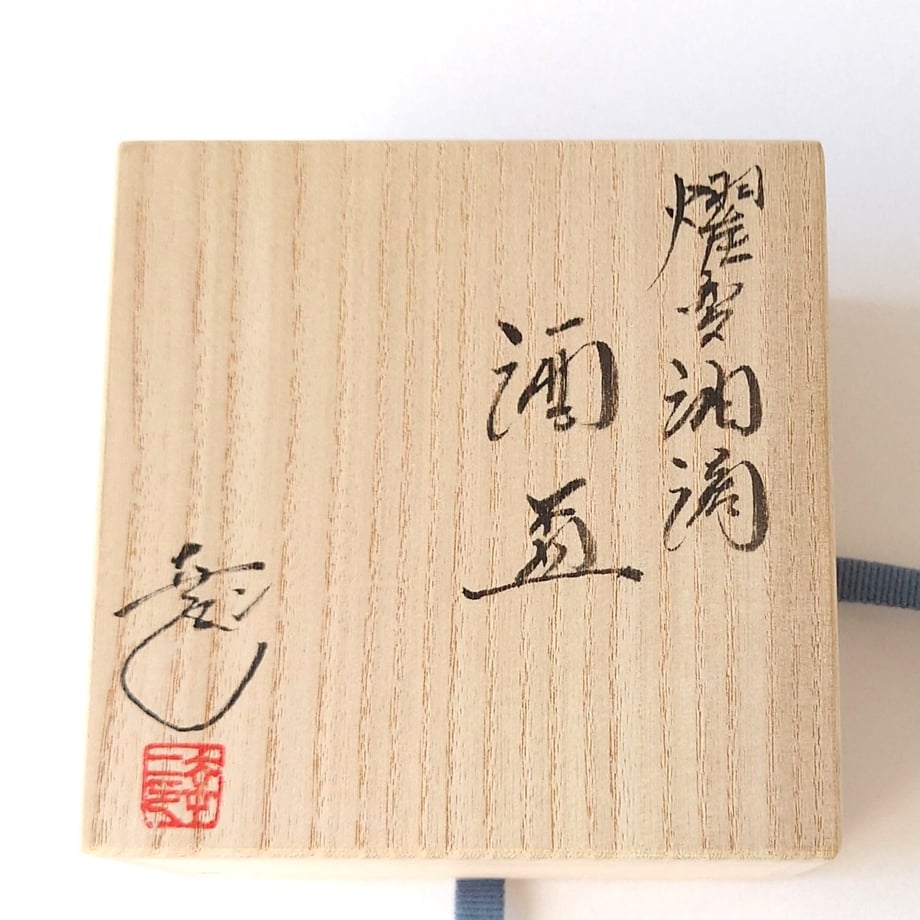 燿変油滴
酒盃